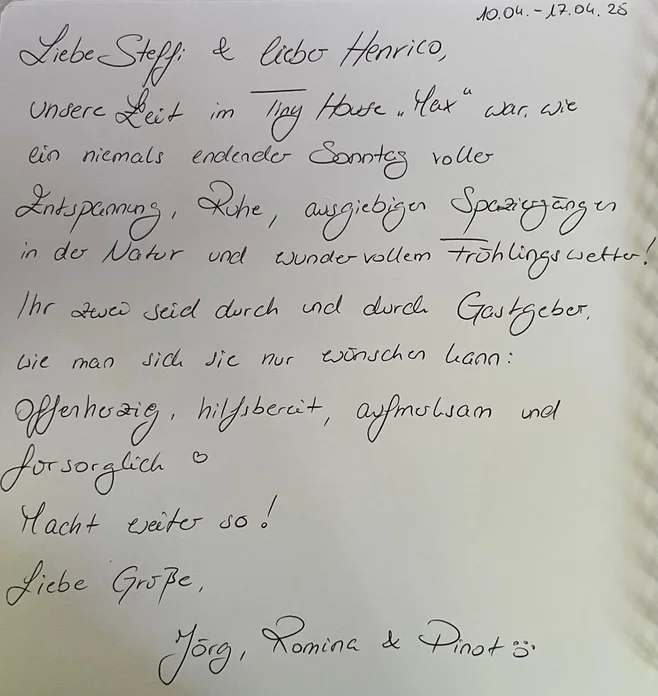 10.04. - 17.04. 25
Liebe Steffi & lieber Henrico,
unsere Zeit im Tiny House „Max“ war, wie
ein niemals endender Sonntag voller
Entspannung, Ruhe, ausgiebigen Spaziergängen
in der Natur und wundervollem Frühlingswetter!
Ihr zwei seid durch und durch Gastgeber,
wie man sich sie nur wünschen kann:
Offenherzig, hilfsbereit, aufmerksam und
fürsorglich ♡
Macht weiter so!
Liebe Grüße,
Jörg, Romina & Pinot